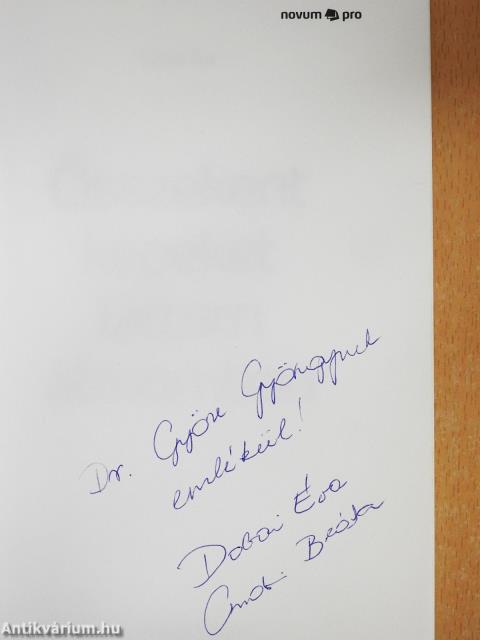 novum pro
Dr. Györe Gyöngynek
emlékül!
Dobai Éva
Beáta
Antikvárium.hu